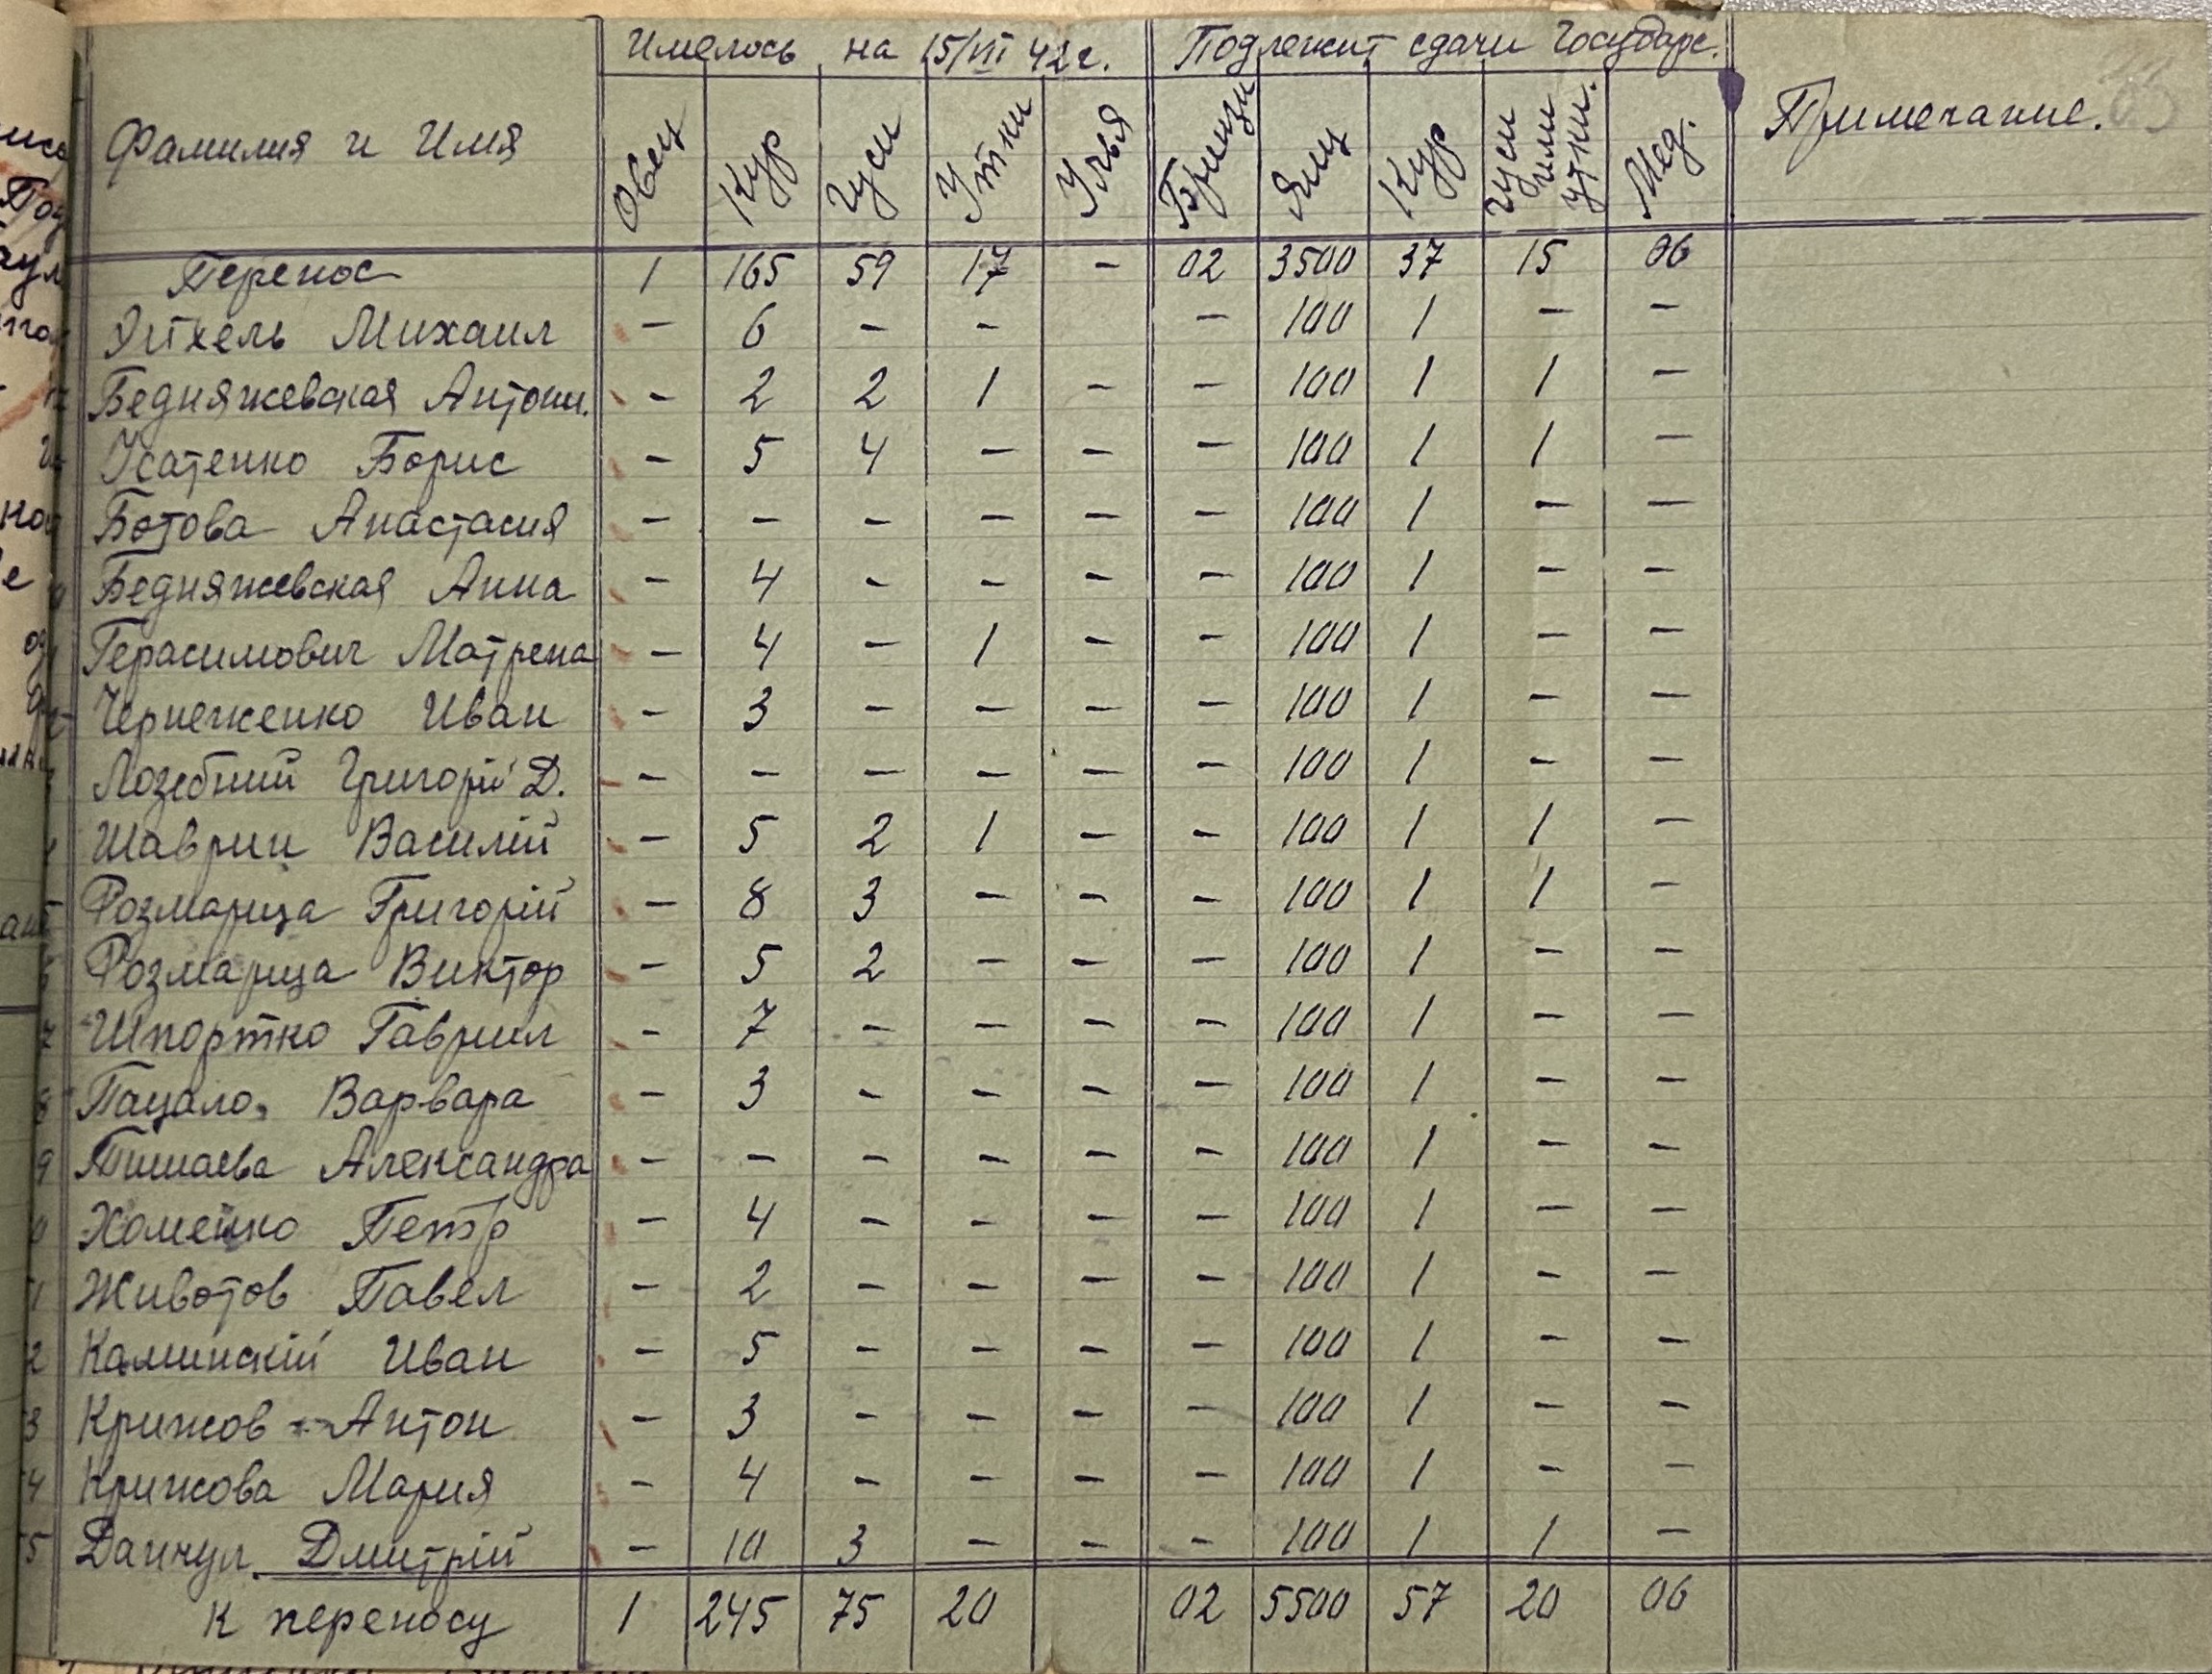 Имелось на 15/VII 42 г. Подлежит сдачи Государс.
Фамилия и Имя Овец Кур Гуси Утки Улья Брынзи Яиц Кур Гуси или утки. Мед. Примечание.
Перенос 1 165 59 17 - 02 3500 37 15 06
Эйхель Михаил - 6 - - - 100 1 - -
Бедняжевская Антони. - 2 2 1 - - 100 1 1 -
Усатенко Борис - 5 4 - - - 100 1 1 -
Ботова Анастасия - - - - - - 100 1 - -
Бедняжевская Анна - 4 - - - - 100 1 - -
Герасимович Матрена - 4 - 1 - - 100 1 - -
Чернеженко Иван - 3 - - - - 100 1 - -
Лозебний Григорій Д. - - - - - - 100 1 - -
Шаврин Василій - 5 2 1 - - 100 1 1 -
Розмарица Григорій - 8 3 - - - 100 1 1 -
Розмарица Виктор - 5 2 - - - 100 1 - -
7 Шпортко Гаврил - 7 - - - - 100 1 - -
8 Пацало Варвара - 3 - - - - 100 1 - -
9 Александра - - - - - - 100 1 - -
0 Хоменко Петр - 4 - - - - 100 1 - -
1 Животов Павел - 2 - - - - 100 1 - -
2 Каминскій Иван - 5 - - - - 100 1 - -
3 Крижов Антон - 3 - - - - 100 1 - -
4 Крижова Мария - 4 - - - - 100 1 - -
5 Данчул Дмитрій - 10 3 - - - 100 1 1 -
К переносу 1 245 75 20 02 5500 57 20 06